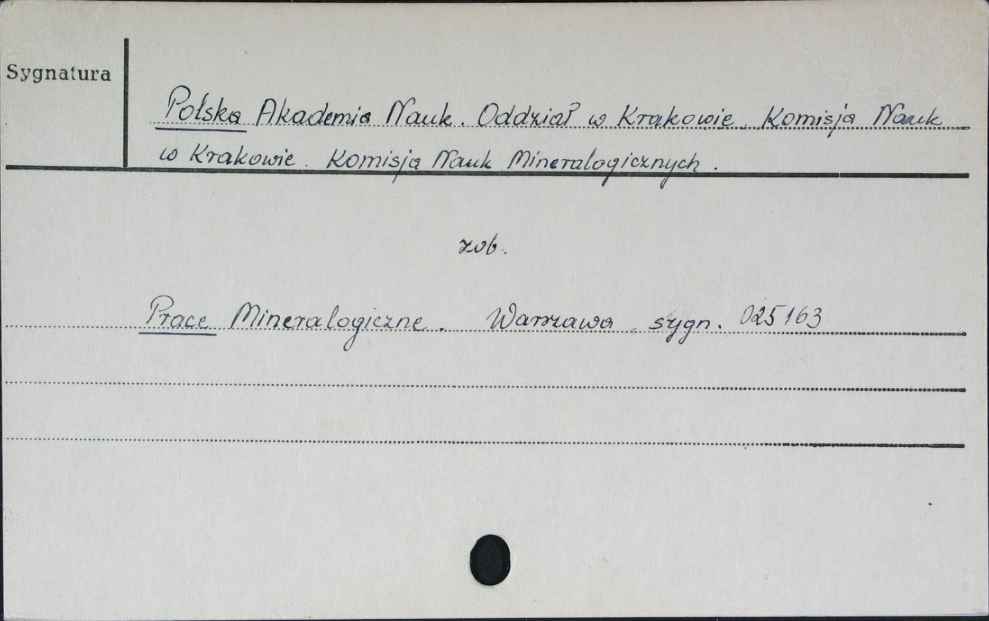 Sygnatura
Polska Akademia Nauk. Oddział w Krakowie. Komisja Nauk
w Krakowie. Komisja Nauk Mineralogicznych.
zob.
Prace Mineralogiczne. Warszawa. sygn. 025163